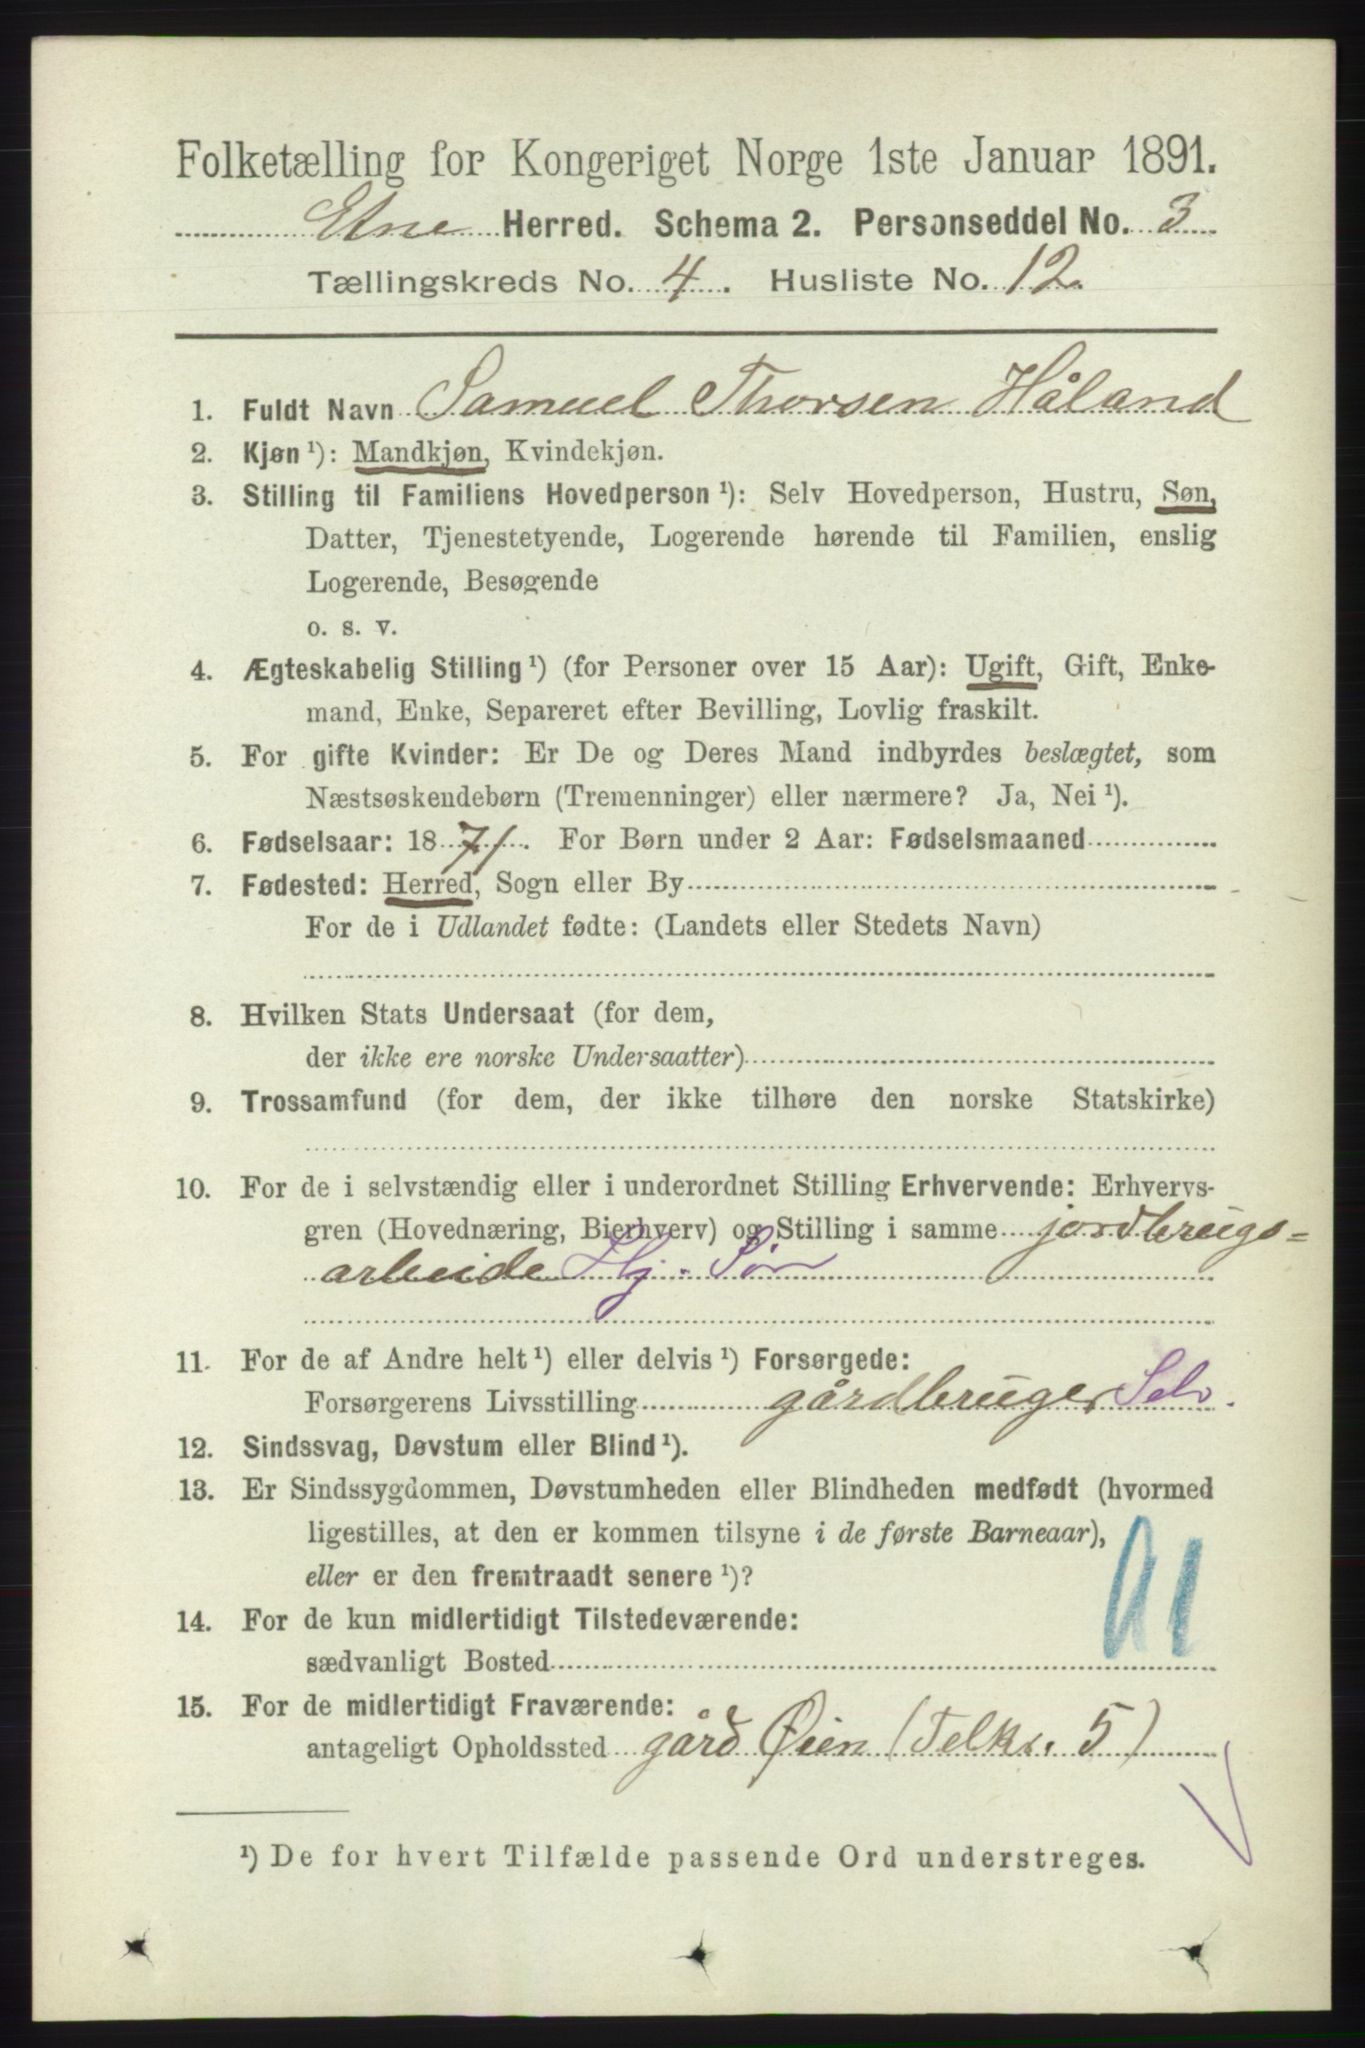 Folketælling for Kongeriget Norge 1ste Januar 1891.
Etne Herred. Schema 2. Personseddel No. 3
Tællingskreds No. 4. Husliste No. 12.
1. Fuldt Navn Samuel Thorsen Håland
2. Kjøn ¹): Mandkjøn, Kvindekjøn.
3. Stilling til Familiens Hovedperson ¹): Selv Hovedperson, Hustru, Søn,
Datter, Tjenestetyende, Logerende hørende til Familien, enslig
Logerende, Besøgende
o. s. v.
4. Ægteskabelig Stilling ¹) (for Personer over 15 Aar): Ugift, Gift, Enke-
mand, Enke, Separeret efter Bevilling, Lovlig fraskilt.
5. For gifte Kvinder: Er De og Deres Mand indbyrdes beslægtet, som
Næstsøskendebørn (Tremenninger) eller nærmere? Ja, Nei ¹).
6. Fødselsaar: 1871. For Børn under 2 Aar: Fødselsmaaned
7. Fødested: Herred, Sogn eller By
For de i Udlandet fødte: (Landets eller Stedets Navn)
8. Hvilken Stats Undersaat (for dem,
der ikke ere norske Undersaatter)
9. Trossamfund (for dem, der ikke tilhøre den norske Statskirke)
10. For de i selvstændig eller i underordnet Stilling Erhvervende: Erhvervs-
gren (Hovednæring, Bierhverv) og Stilling i samme jordbrugs=
arbeide Hj. Søn
11. For de af Andre helt ¹) eller delvis ¹) Forsørgede:
Forsørgerens Livsstilling gårdbruger Selv.
12. Sindssvag, Døvstum eller Blind ¹).
13. Er Sindssygdommen, Døvstumheden eller Blindheden medfødt (hvormed
ligestilles, at den er kommen tilsyne i de første Barneaar),
eller er den fremtraadt senere ¹)?
14. For de kun midlertidigt Tilstedeværende:
sædvanligt Bosted
15. For de midlertidigt Fraværende:
antageligt Opholdssted gård Øien (Telkr. 5)
¹) De for hvert Tilfælde passende Ord understreges.